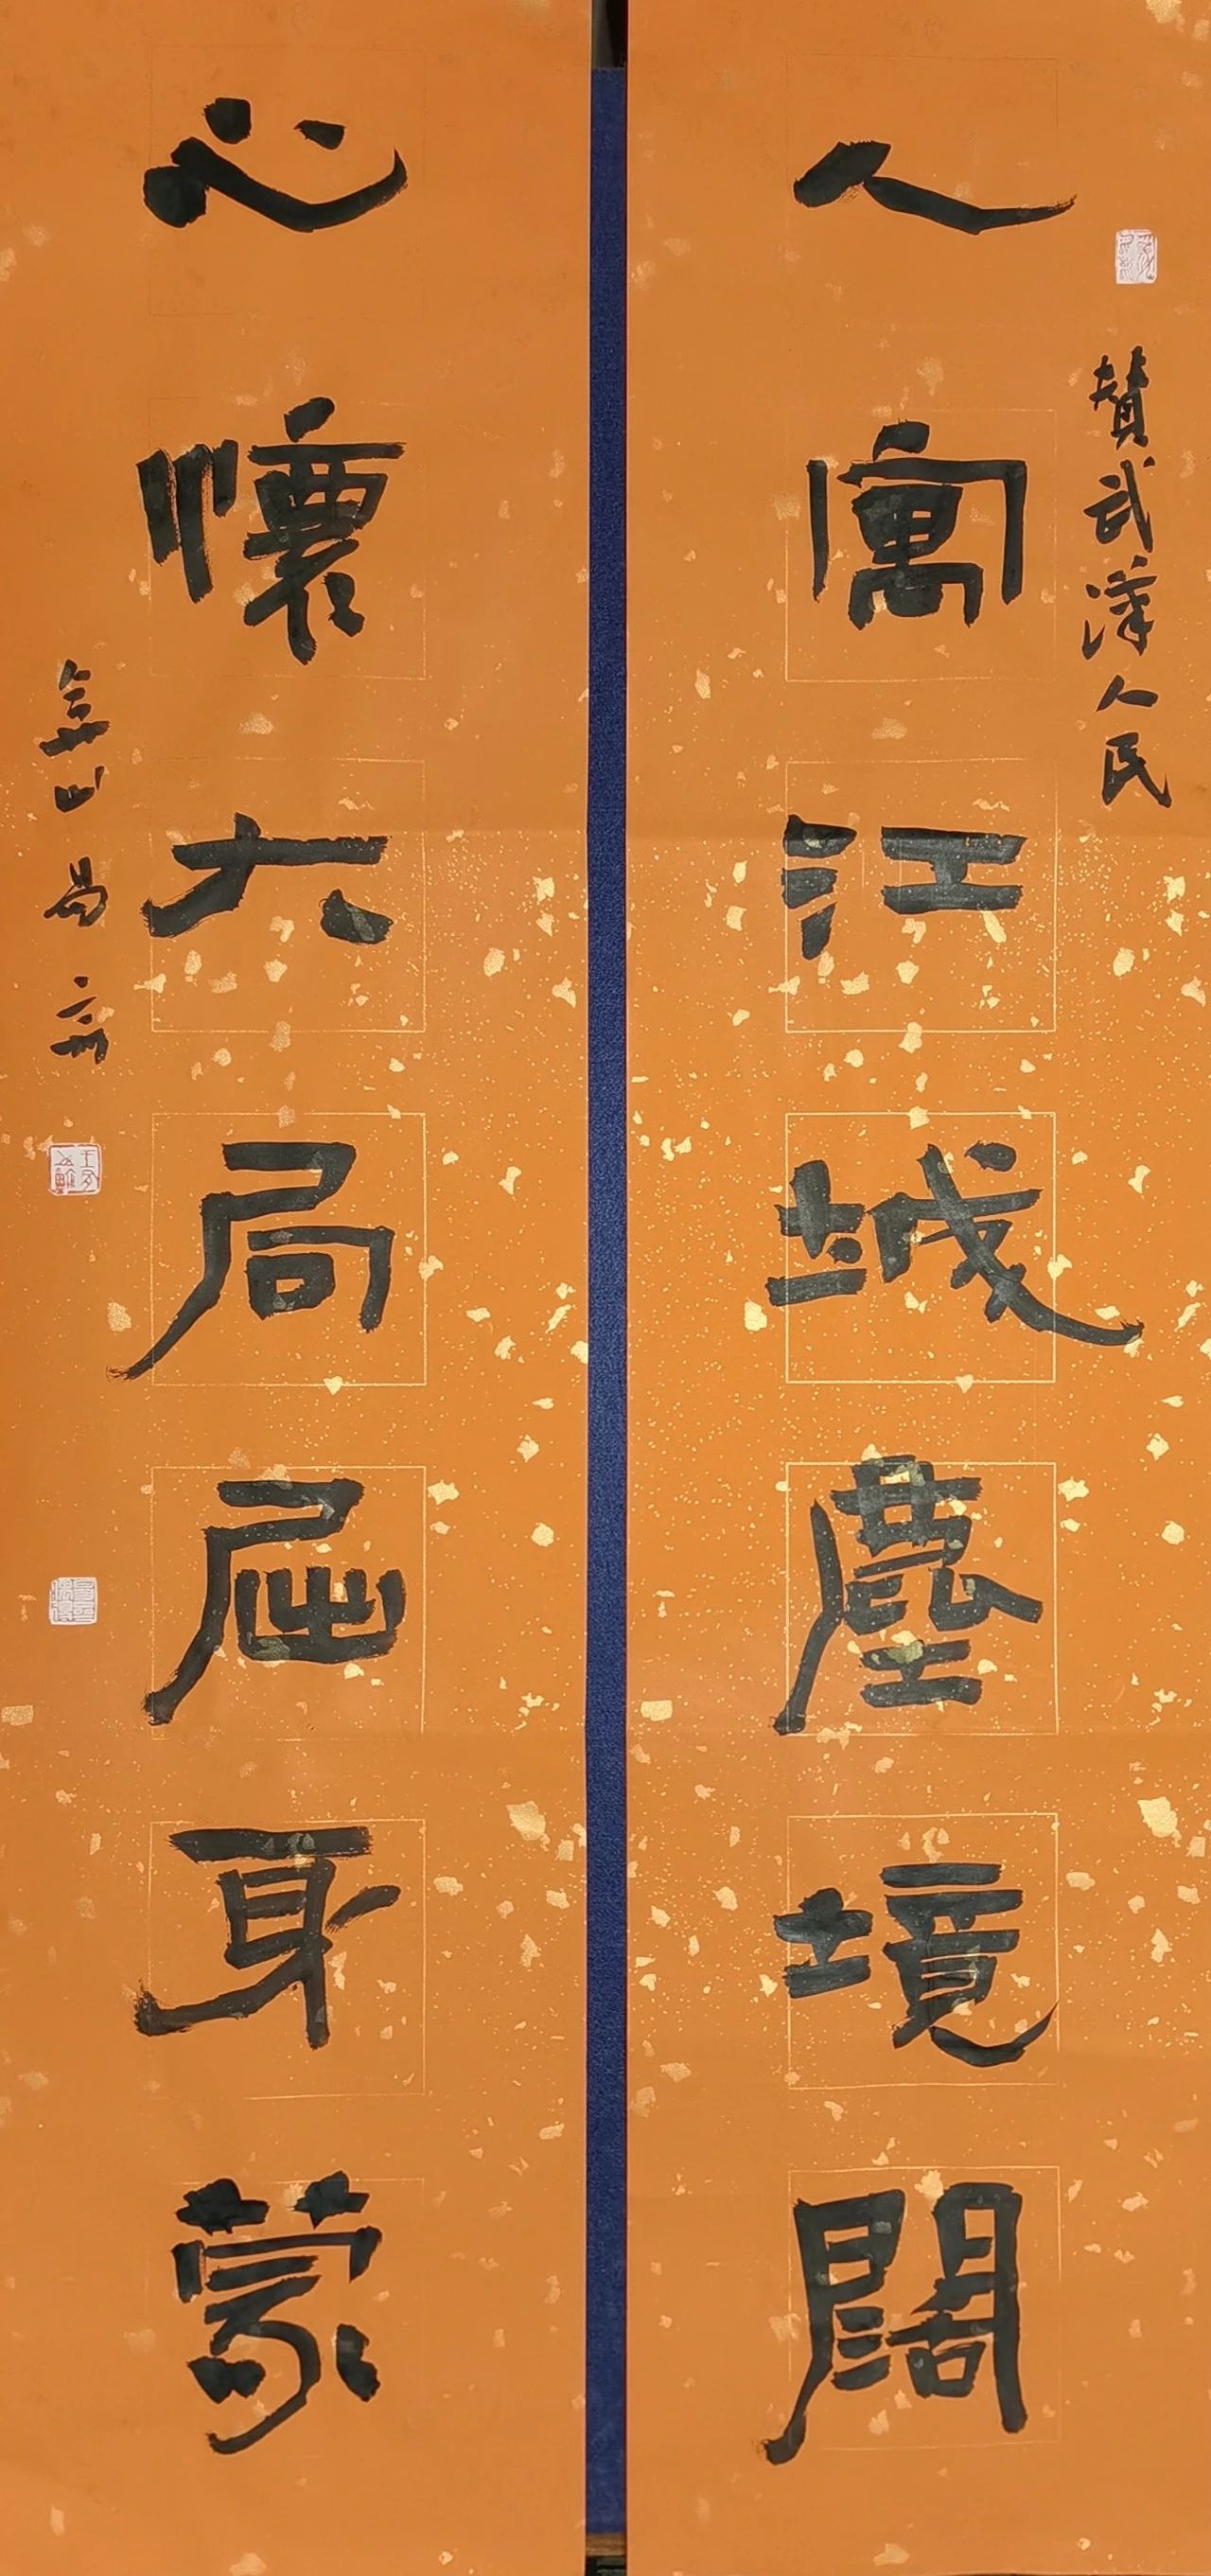 贊武漢人民
人寓江城塵境闊
心懷大局屈身蒙